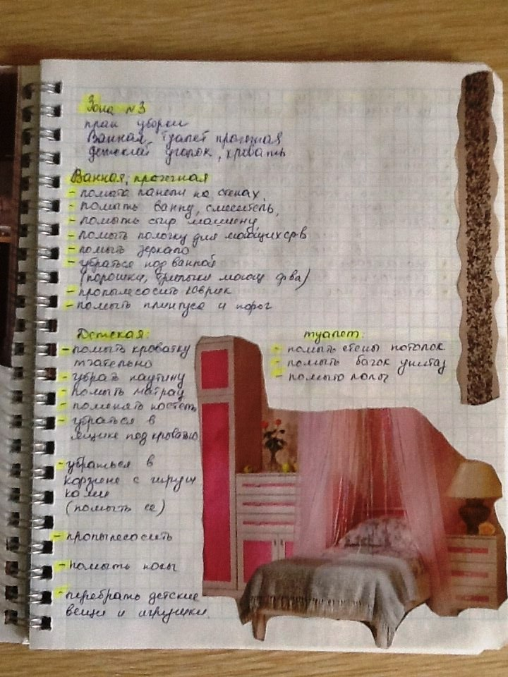 Зона №3
план уборки
Ванная, туалет прихожая
детский уголок, кровать
Ванная, прихожая
- помыть панели на стенах,
- помыть ванну, смеситель,
- помыть стир машину
- помыть полочку для моющих ср-в
- помыть зеркало
- убраться под ванной
(порошки, тряпочки моющ. ср-ва)
- пропылесосить коврик
- помыть плинтуса и порог
Детская:
- помыть кроватку
тщательно
- убрать паутину
- помыть матрац
- поменять постель
- убраться в
ящике под кроватью
- убраться в
корзине с игруш
ками
(помыть её)
- пропылесосить
- помыть полы
- перебрать детские
вещи и игрушки.
туалет
- помыть стены потолок
- помыть бачок унитаз
- помыть полы